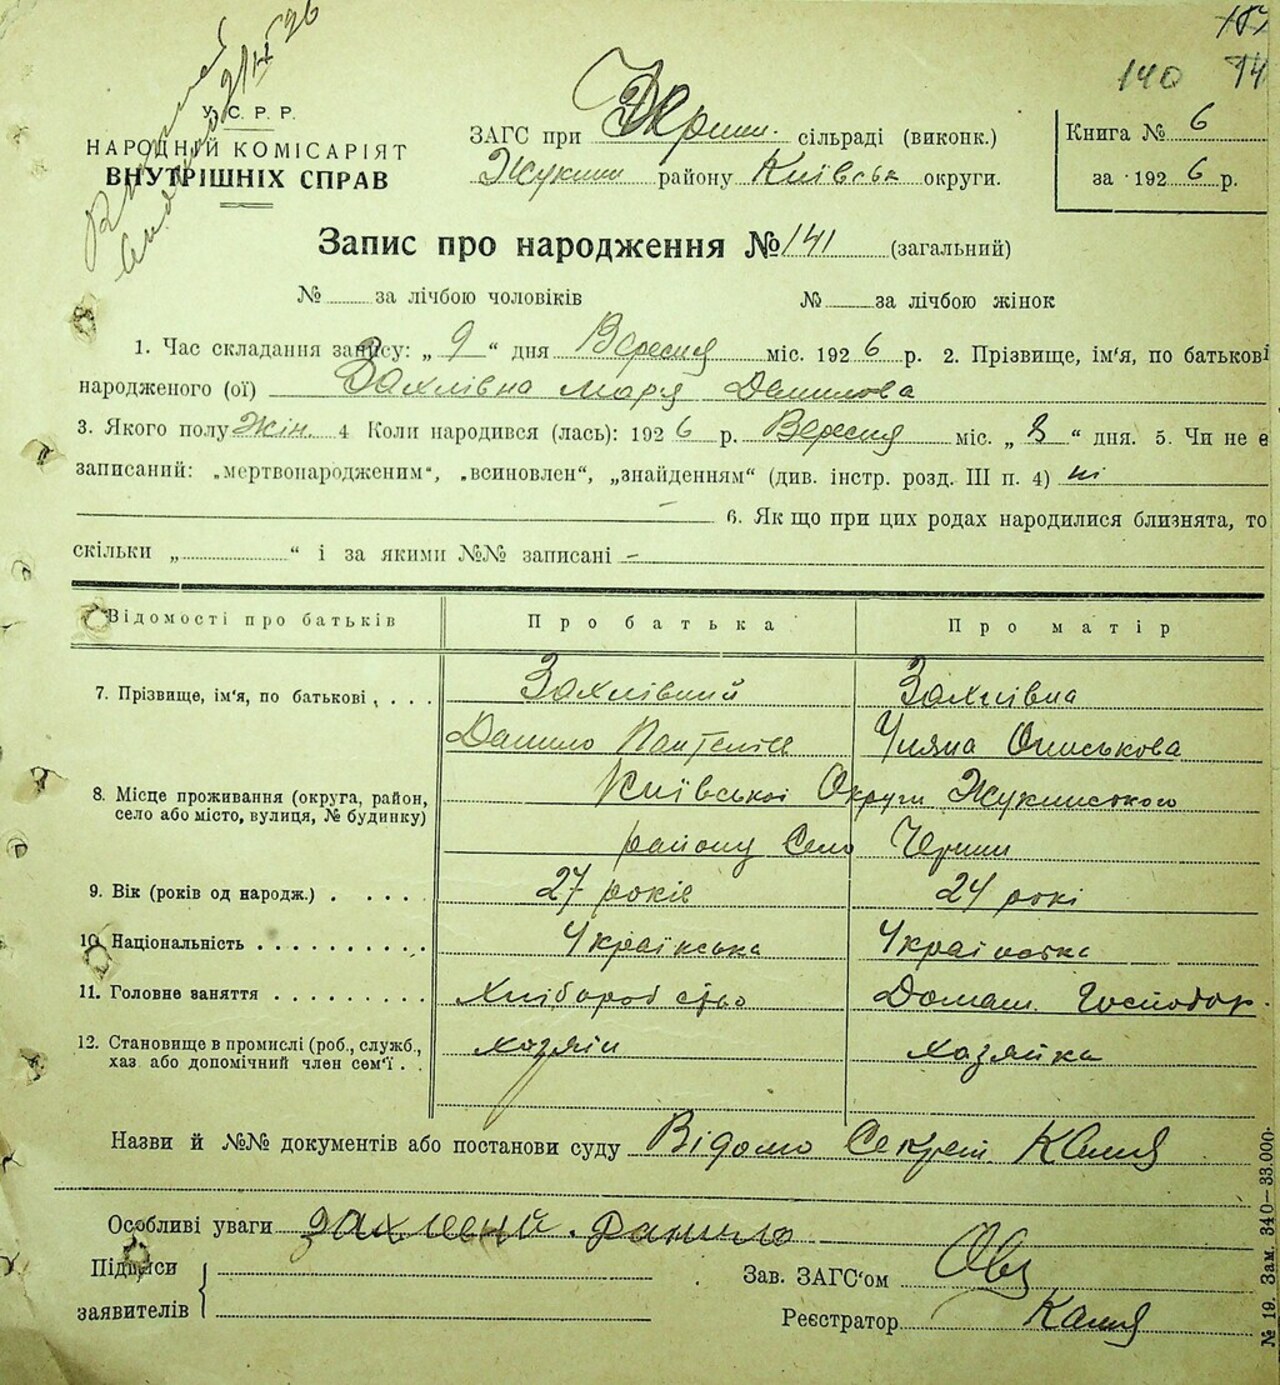 140 14
У. С. Р. Р.
НАРОДНІЙ КОМІСАРІЯТ
ВНУТРІШНІХ СПРАВ
ЗАГС при сільраді (виконк.)
Жукин району Київськ округи.
Книга № 6
за 1926 р.
Запис про народження № 141 (загальний)
№ за лічбою чоловіків № за лічбою жінок
1. Час складання запису: „ 9 “ дня Вересня міс. 1926 р. 2. Прізвище, ім'я, по батькові
народженого (ої) Захлівна Марія Данилова
3. Якого полу Жін. 4 Коли народився (лась): 1926 р. Вересня міс. „ 8 “ дня. 5. Чи не є
записаний: „мертвонародженим“, „всиновлен“, „знайденням“ (див. інстр. розд. III п. 4) ні
6. Як що при цих родах народилися близнята, то
скільки „ “ і за якими №№ записані –
Відомості про батьків Про батька Про матір
7. Прізвище, ім'я, по батькові . . . Захлівний Захлівна
Данило Пантелієв Уляна Ониськова
8. Місце проживання (округа, район, Київської Округи Жукинського
село або місто, вулиця, № будинку)
району Село Чернин
9. Вік (років од народж.) . . . . 27 років 24 рокі
10. Національність . . . . . . . . . . Українська Українка
11. Головне заняття . . . . . . . . . Хліборобство Домаш. Господар.
12. Становище в промислі (роб., служб., хазяїн хазяйка
хаз або допомічний член сем'ї . .
Назви й №№ документів або постанови суду Відомо Секрет
Особливі уваги Захлівний Данило
Підписи
заявителів
Зав. ЗАГС'ом
Реєстратор
№ 19. Зам. 340—33.000.